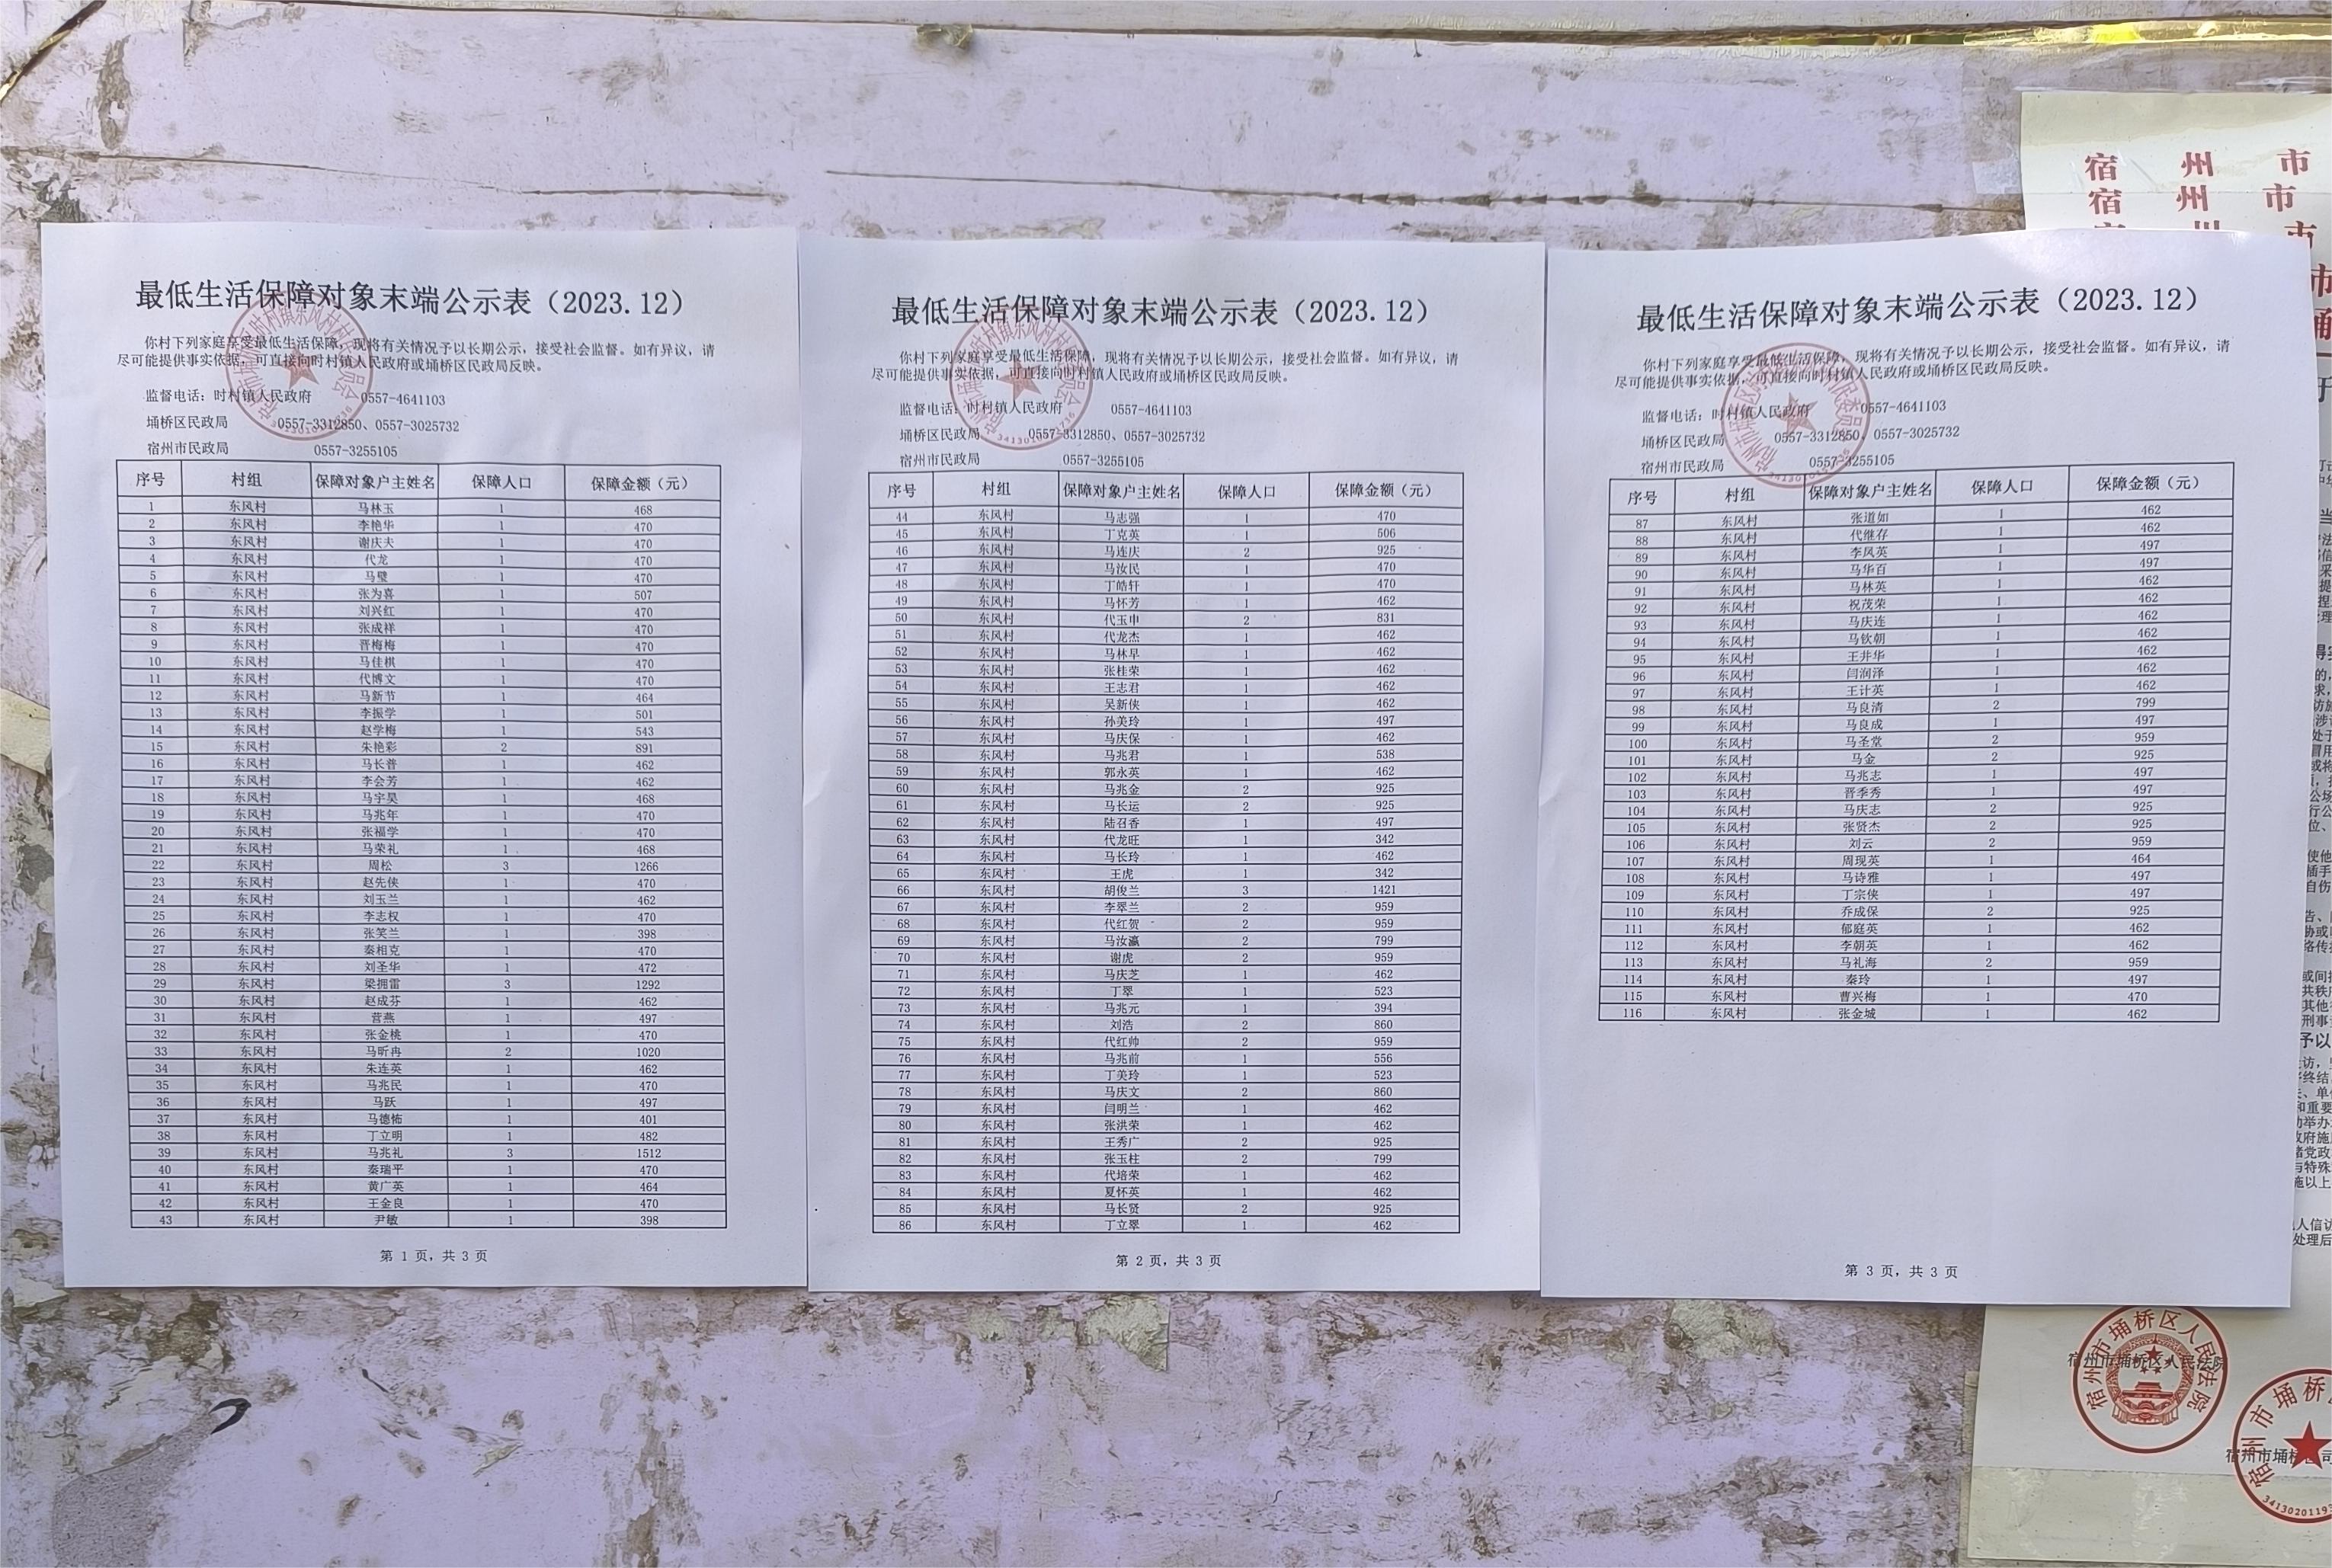 最低生活保障对象末端公示表（2023.12）
你村下列家庭享受最低生活保障，现将有关情况予以长期公示，接受社会监督。如有异议，请
尽可能提供事实依据，可直接向时村镇人民政府或埇桥区民政局反映。
监督电话：时村镇人民政府 0557-4641103
埇桥区民政局 0557-3312850、0557-3025732
宿州市民政局 0557-3255105
序号 村组 保障对象户主姓名 保障人口 保障金额（元）
1 东风村 马林玉 1 468
2 东风村 李艳华 1 470
3 东风村 谢庆夫 1 470
4 东风村 代龙 1 470
5 东风村 马璧 1 470
6 东风村 张为喜 1 507
7 东风村 刘兴红 1 470
8 东风村 张成祥 1 470
9 东风村 晋梅梅 1 470
10 东风村 马佳棋 1 470
11 东风村 代博文 1 470
12 东风村 马新节 1 464
13 东风村 李振学 1 501
14 东风村 赵学梅 1 543
15 东风村 朱艳彩 2 891
16 东风村 马长普 1 462
17 东风村 李会芳 1 462
18 东风村 马宇昊 1 468
19 东风村 马兆年 1 470
20 东风村 张福学 1 470
21 东风村 马荣礼 1 468
22 东风村 周松 3 1266
23 东风村 赵先侠 1 470
24 东风村 刘玉兰 1 462
25 东风村 李志权 1 470
26 东风村 张笑兰 1 398
27 东风村 秦相克 1 470
28 东风村 刘圣华 1 472
29 东风村 梁拥雷 3 1292
30 东风村 赵成芬 1 462
31 东风村 营燕 1 497
32 东风村 张金桃 1 470
33 东风村 马昕冉 2 1020
34 东风村 朱连英 1 462
35 东风村 马兆民 1 470
36 东风村 马跃 1 497
37 东风村 马德怖 1 401
38 东风村 丁立明 1 482
39 东风村 马兆礼 3 1512
40 东风村 秦瑞平 1 470
41 东风村 黄广英 1 464
42 东风村 王金良 1 470
43 东风村 尹敏 1 398
第 1 页，共 3 页
最低生活保障对象末端公示表（2023.12）
你村下列家庭享受最低生活保障，现将有关情况予以长期公示，接受社会监督。如有异议，请
尽可能提供事实依据，可直接向时村镇人民政府或埇桥区民政局反映。
监督电话：时村镇人民政府 0557-4641103
埇桥区民政局 0557-3312850、0557-3025732
宿州市民政局 0557-3255105
序号 村组 保障对象户主姓名 保障人口 保障金额（元）
44 东风村 马志强 1 470
45 东风村 丁克英 1 506
46 东风村 马连庆 2 925
47 东风村 马汝民 1 470
48 东风村 丁皓轩 1 470
49 东风村 马怀芳 1 462
50 东风村 代玉申 2 831
51 东风村 代龙杰 1 462
52 东风村 马林早 1 462
53 东风村 张桂荣 1 462
54 东风村 王志君 1 462
55 东风村 吴新侠 1 462
56 东风村 孙美玲 1 497
57 东风村 马庆保 1 462
58 东风村 马兆君 1 538
59 东风村 郭永英 1 462
60 东风村 马兆金 2 925
61 东风村 马长运 2 925
62 东风村 陆召香 1 497
63 东风村 代龙旺 1 342
64 东风村 马长玲 1 462
65 东风村 王虎 1 342
66 东风村 胡俊兰 3 1421
67 东风村 李翠兰 2 959
68 东风村 代红贺 2 959
69 东风村 马汝瀛 2 799
70 东风村 谢虎 2 959
71 东风村 马庆芝 1 462
72 东风村 丁翠 1 523
73 东风村 马兆元 1 394
74 东风村 刘浩 2 860
75 东风村 代红帅 2 959
76 东风村 马兆前 1 556
77 东风村 丁美玲 1 523
78 东风村 马庆文 2 860
79 东风村 闫明兰 1 462
80 东风村 张洪荣 1 462
81 东风村 王秀广 2 925
82 东风村 张玉柱 2 799
83 东风村 代培荣 1 462
84 东风村 夏怀英 1 462
85 东风村 马长贤 2 925
86 东风村 丁立翠 1 462
第 2 页，共 3 页
最低生活保障对象末端公示表（2023.12）
你村下列家庭享受最低生活保障，现将有关情况予以长期公示，接受社会监督。如有异议，请
尽可能提供事实依据，可直接向时村镇人民政府或埇桥区民政局反映。
监督电话：时村镇人民政府 0557-4641103
埇桥区民政局 0557-3312850、0557-3025732
宿州市民政局 0557-3255105
序号 村组 保障对象户主姓名 保障人口 保障金额（元）
87 东风村 张道如 1 462
88 东风村 代继存 1 462
89 东风村 李风英 1 497
90 东风村 马华百 1 497
91 东风村 马林英 1 462
92 东风村 祝茂荣 1 462
93 东风村 马庆连 1 462
94 东风村 马钦朝 1 462
95 东风村 王井华 1 462
96 东风村 闫润泽 1 462
97 东风村 王计英 1 462
98 东风村 马良清 2 799
99 东风村 马良成 1 497
100 东风村 马圣堂 2 959
101 东风村 马金 2 925
102 东风村 马兆志 1 497
103 东风村 晋季秀 1 497
104 东风村 马庆志 2 925
105 东风村 张贤杰 2 925
106 东风村 刘云 2 959
107 东风村 周现英 1 464
108 东风村 马诗雅 1 497
109 东风村 丁宗侠 1 497
110 东风村 乔成保 2 925
111 东风村 郁庭英 1 462
112 东风村 李朝英 1 462
113 东风村 马礼海 2 959
114 东风村 秦玲 1 497
115 东风村 曹兴梅 1 470
116 东风村 张金城 1 462
第 3 页，共 3 页
宿 州 市
宿 州 市
宿州市埇桥区人民法院
宿州市埇桥区人民法院
宿州市埇桥